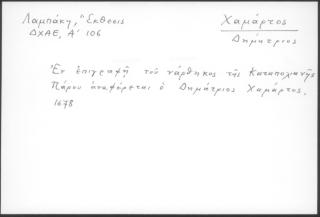 Λαμπάκη, Ἔκθεσις
ΔΧΑΕ, Α' 106
Χαμάρτος
Δημήτριος
Ἐν ἐπιγραφῇ τοῦ νάρθηκος τῆς Καταπολιανῆς
Πάρου ἀναφέρεται ὁ Δημήτριος Χαμάρτος,
1678